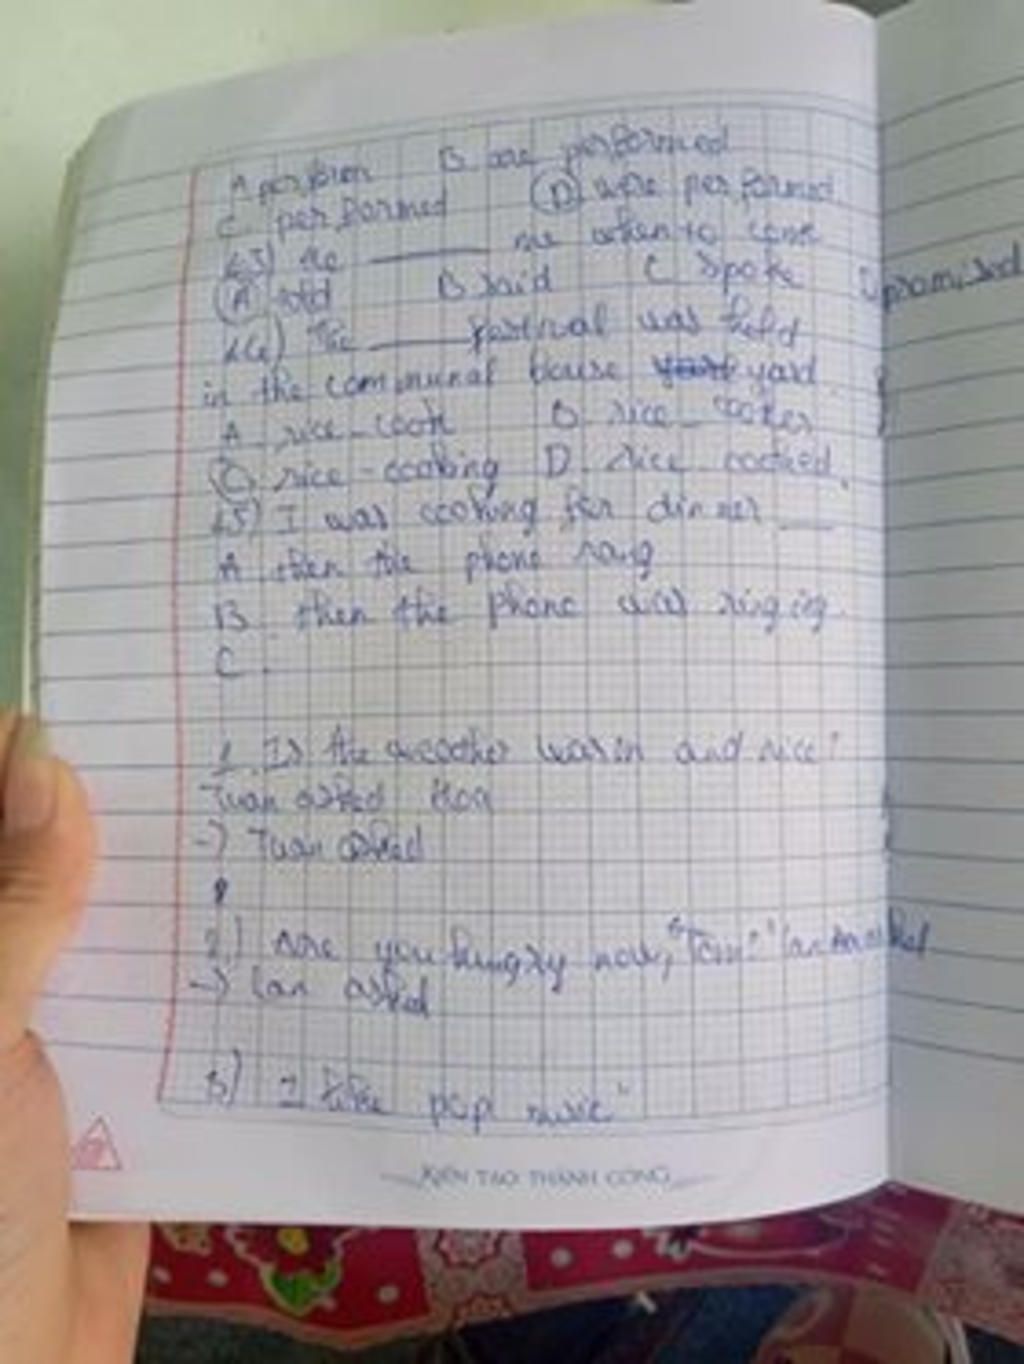 A perform B. are performed
C. performed D were performed
23) He ______ me when to come
A told B said C spoke D promised
24) The ______ festival was held
in the communal house yard.
A. rice-cook B. rice-cooker
C. rice-cooking D. rice cooked.
25) I was cooking for dinner ___
A then the phone rang
B. then the phone was ringing.
C.
1. Is the weather warm and nice?
Tuan asked Hoa
-> Tuan asked
2.) Are you hungry now, Tom?" Lan asked
-> Lan asked
3) I like pop music"
KIẾN TẠO THÀNH CÔNG